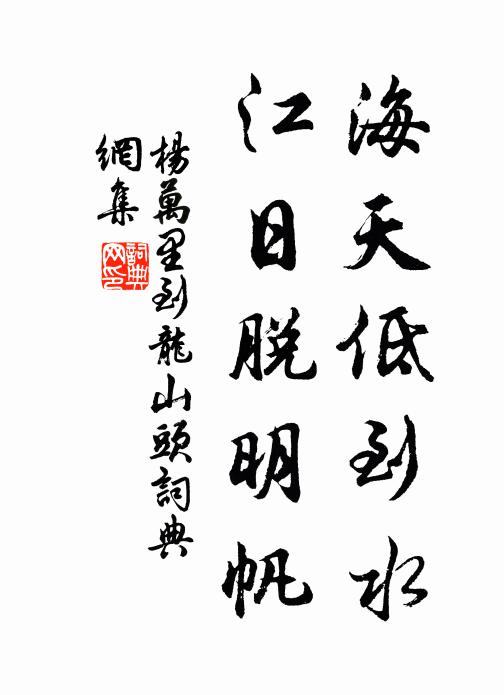 海天低到水
江日脱明帆
楊萬里到龍山頭詞典
網集
詞典
网印